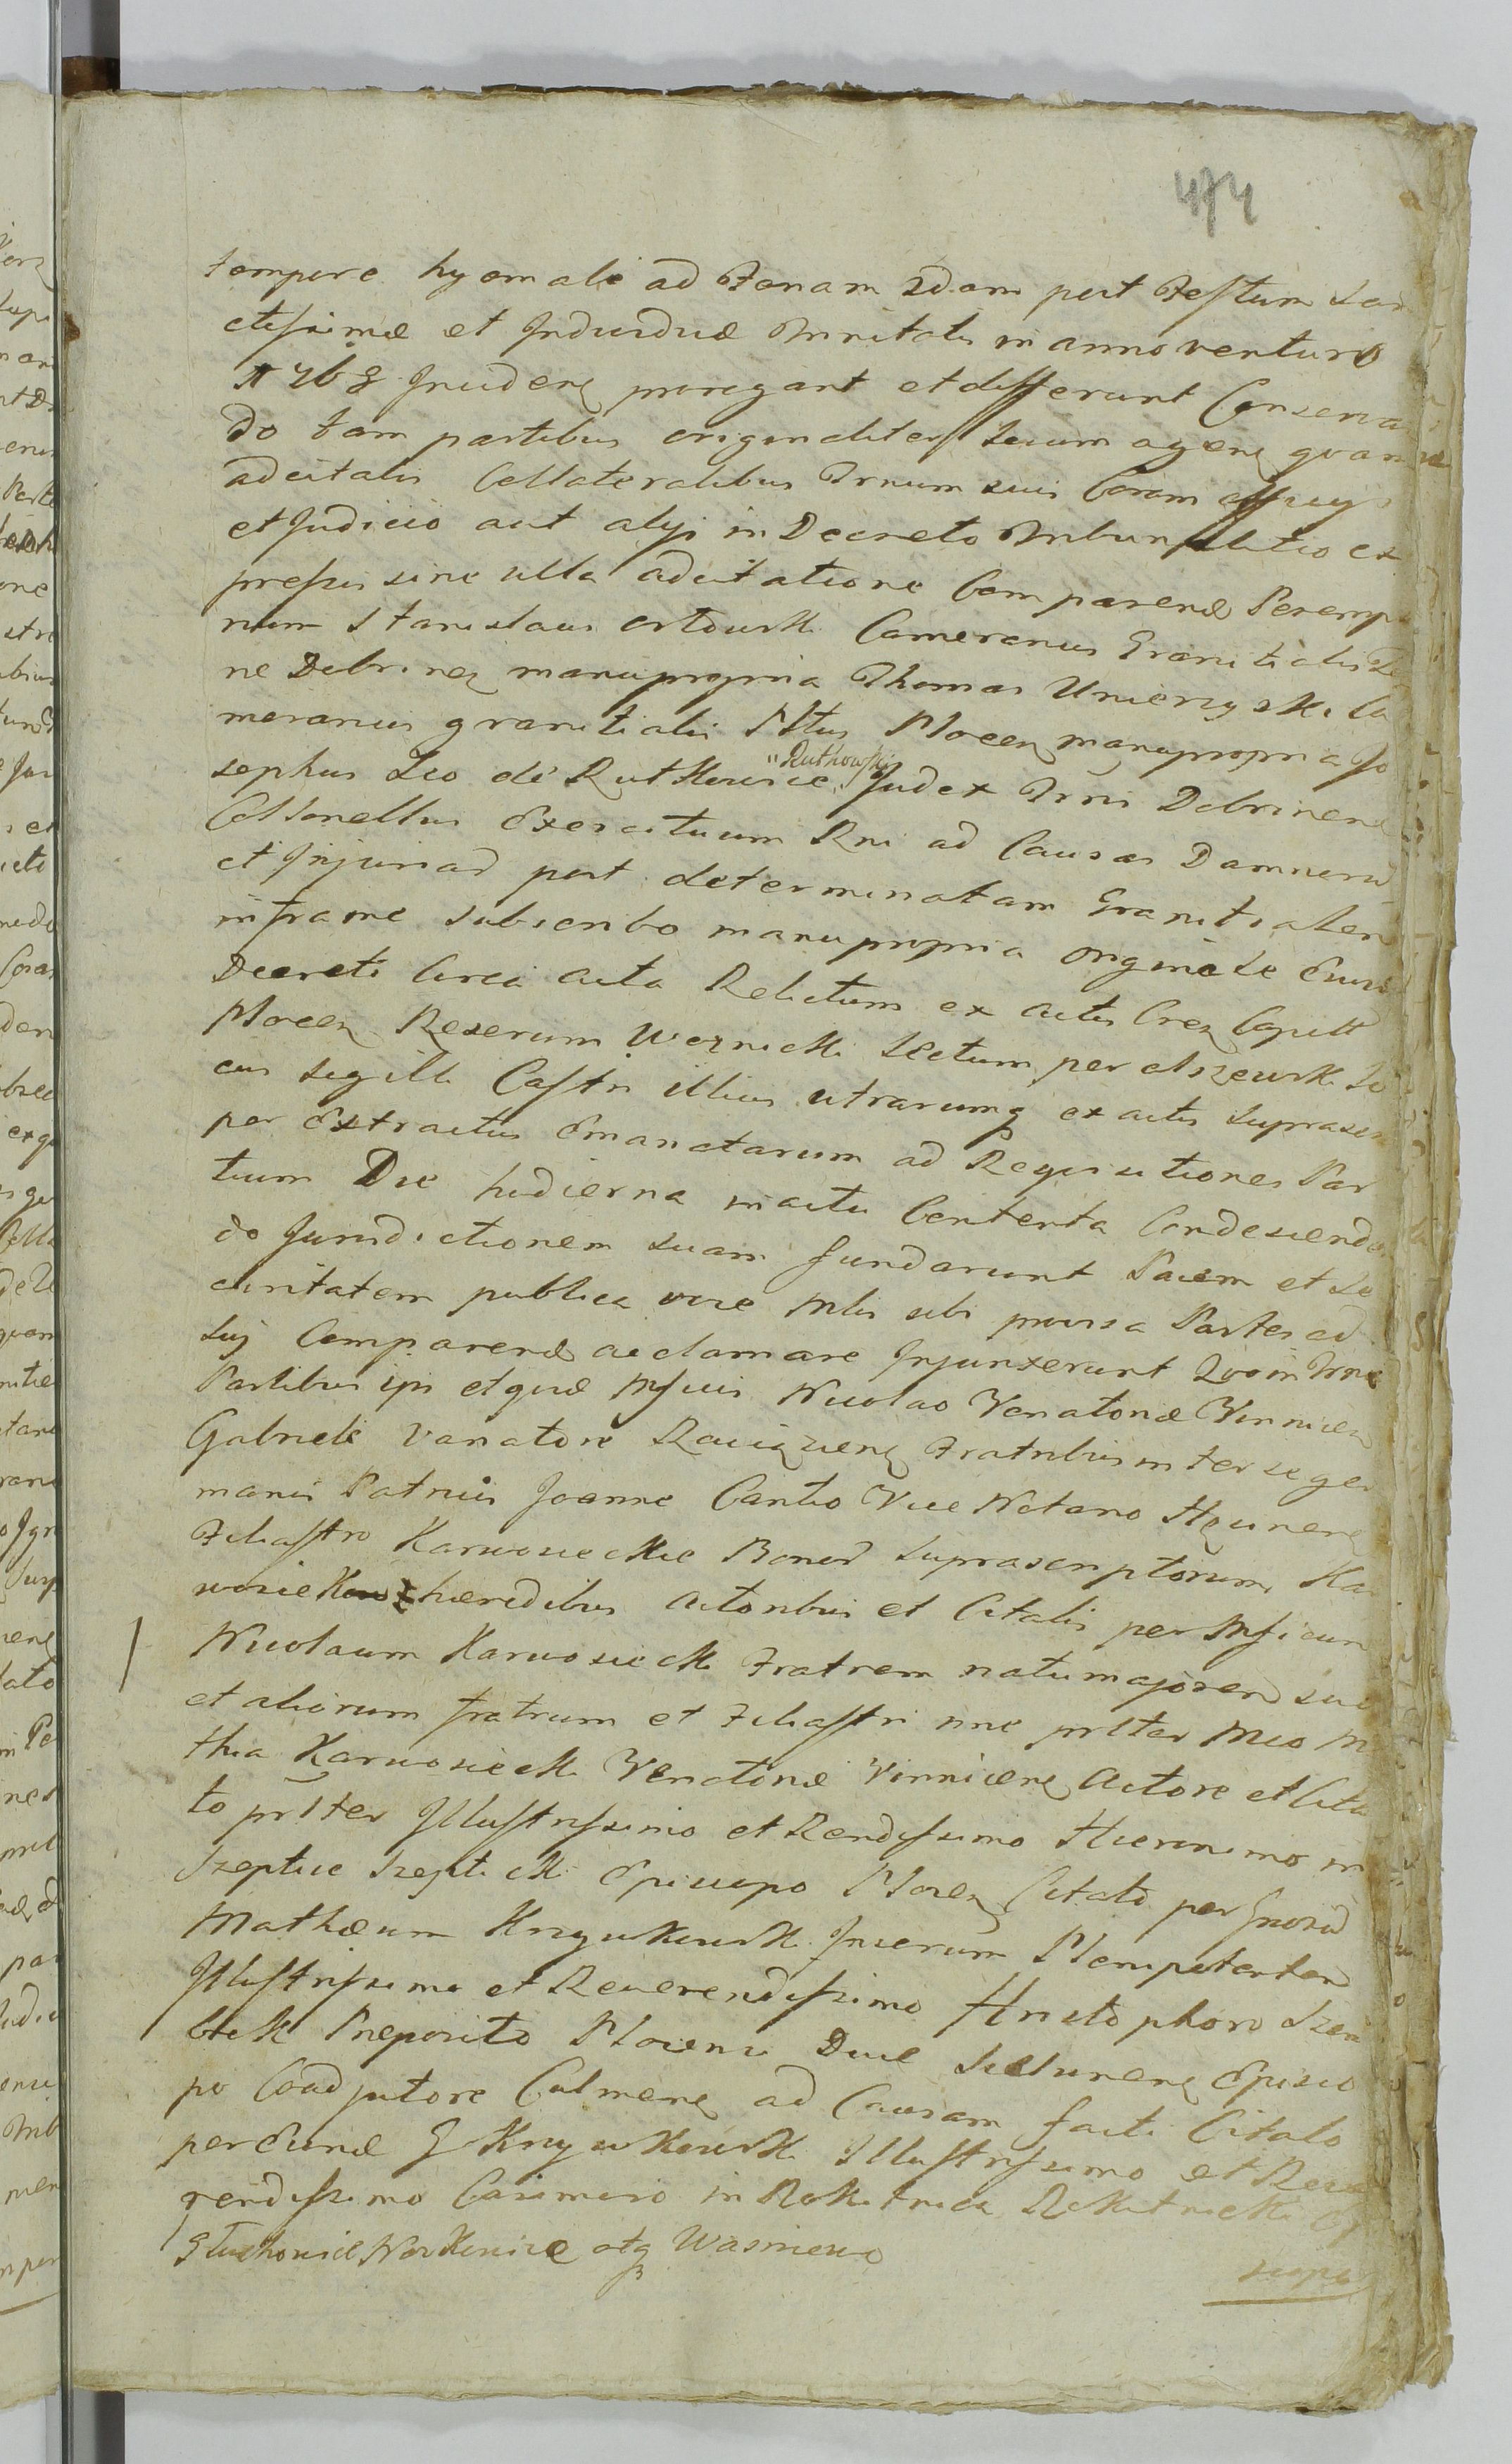 474
tempore hyemali ad Feriam 2dam post Festum San
ctissimæ et Individuæ Trinitatis in anno venturo
1768 Incidenę prorogant et differunt Conserva
do tam partibus originaliter secum agenę quam
adcitatis Collateralibus Trnum suis Coram officijs
et Judicio aut alys in Decreto Tribunalitio ex
pressis sine ulla adcitatione Comparenæ Peremp
rium Stanislaus Camerarius Granitialis
ne Dobrinenę manupropria Thomas Unierzyski Ca
merarius granitialis Pltus Plocenę manupropria Jo
sephus Leo de Rutkowice "Ruthowski Judex Trris Dobrinenę
Collonellus Exercituum Rni ad Causas Damnorū
et Injuriad post determinatam Granitialem
inframe subscribo manupropria originale Ejusd
Decreti Circa acta Relictum ex actis Crez Capitt
Plocenę Rexerum Woznicki Lectum per Lo
cus Sigilli Castri illius utrarumq ex actis suprascri
per Extractus Emanatarum ad Requisitiones Par
tium Die hodierna in actu Contenta Condescenden
do Jurisdictionem suam fundarunt Pacem et Se
curitatem publica voce Mlis sibi provisa Partes ad
suj Comparenæ acclamare Injunxerunt Quo in Trno
Partibus ipsis etque Mfficis Nicolao Venatoriæ Vinnicenę
Gabriele Vanatore Raciązenę Fratribus inter se ger
manis Patruis Joanne Cantio Vice Notario
Filiastro Karwosieckie Bonor suprascriptorum Kar
wosieki hæredibus Actoribus et Citatis per Mficum
Nicolaum Karwosiecki Fratrem natu majorem suo
et aliorum fratrum et Filiastri nne prlter Mco M
thia Karwosiecki Venatoriæ Vinnicenę Actore et Cita
to prlter Illustrissimo et Rendissimo Hieronimo in
Szeptyce Szepticki Episcopo Plocenę Citato per Gnosū
Mathæum Knyukowski Juverum Plenipotenten
Illustrissimo et Reverendissimo Hristophoro Szem
bek Preposito Plocensi Duce Sielunenę Episco
po Coadjutore Culmenę ad Causam facti Citato
per Eunde G Knyukowski Illustrissimo et Reve
rendissimo Casimiro in Rokitnica Rokitnicki
Głuchowice Workowice atq Wasniewo
scopo